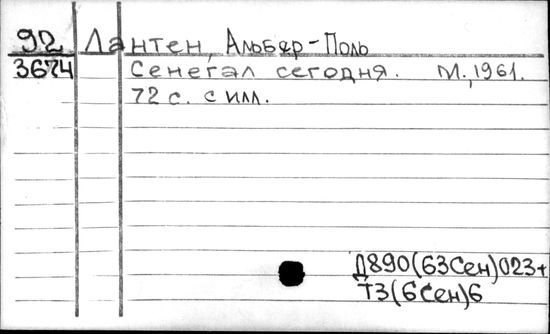 92 Лантен, Альбер-Поль
3674 Сенегал сегодня. М., 1961.
72 с. с илл.
Д890(63Сен)023+
Т3(6Сен)6